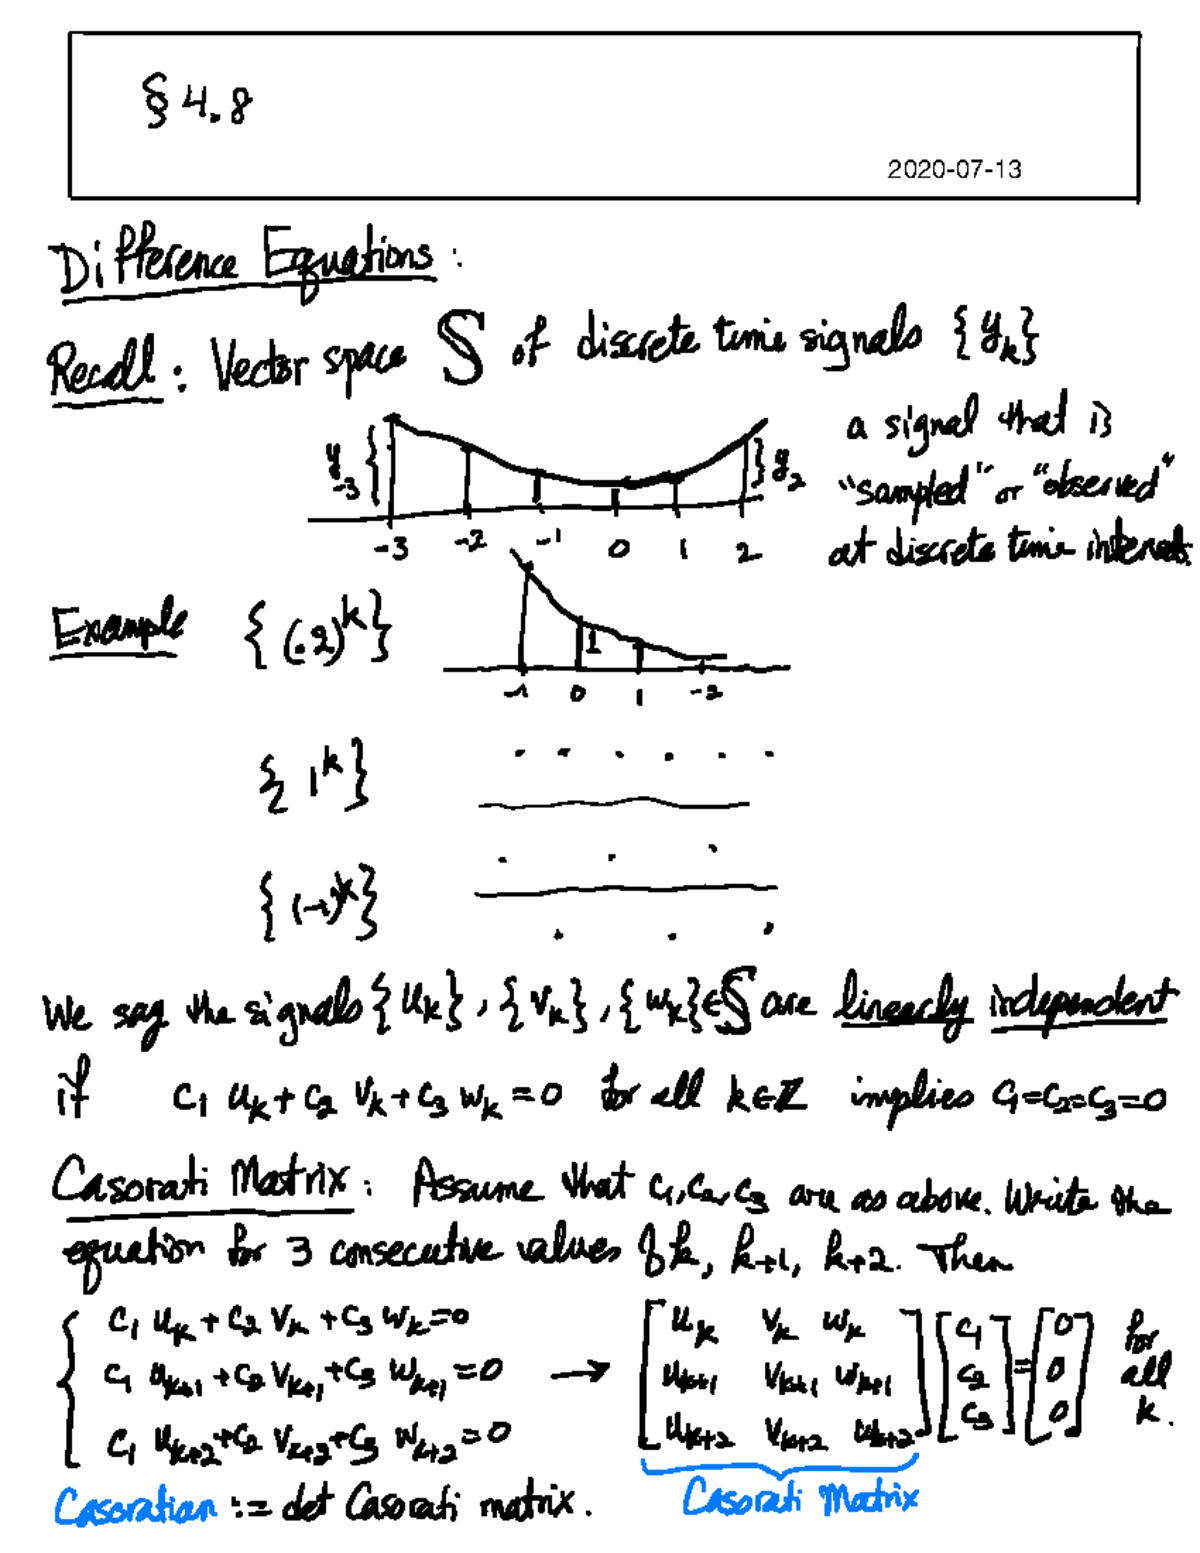 § 4.8
2020-07-13
Difference Equations:
Recall: Vector space 𝕊 of discrete time signals {y_k}
a signal that is
"sampled" or "observed"
at discrete time intervals.
y_-3
y_2
-3 -2 -1 0 1 2
Example {(.2)^k}
1
-1 0 1 -2
{1^k}
{(-1)^k}
We say the signals {u_k}, {v_k}, {w_k} ∈ 𝕊 are linearly independent
if c_1 u_k + c_2 v_k + c_3 w_k = 0 for all k ∈ ℤ implies c_1=c_2=c_3=0
Casorati Matrix: Assume that c_1, c_2, c_3 are as above. Write the
equation for 3 consecutive values of k, k+1, k+2. Then
{ c_1 u_k + c_2 v_k + c_3 w_k = 0
c_1 u_k+1 + c_2 v_k+1 + c_3 w_k+1 = 0
c_1 u_k+2 + c_2 v_k+2 + c_3 w_k+2 = 0
→
[ u_k v_k w_k ] [ c_1 ] = [ 0 ] for
[ u_k+1 v_k+1 w_k+1 ] [ c_2 ] [ 0 ] all
[ u_k+2 v_k+2 w_k+2 ] [ c_3 ] [ 0 ] k.
Casorati Matrix
Casoratian := det Casorati matrix.